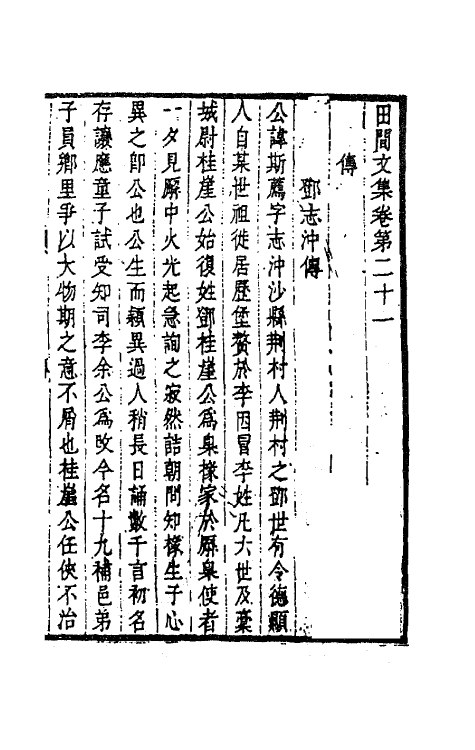 田間文集卷第二十一
傳
鄧志沖傳
公諱斯薦字志沖沙縣荆村人荆村之鄧世有令德顯
人自某世祖徙居歷堡贅於李因冒李姓凡六世及藁
城尉桂崖公始復姓鄧桂崖公為臬掾家於廨臬使者
一夕見廨中火光起急詢之寂然詰朝問知掾生子心
異之卽公也公生而穎異過人稍長日誦數千言初名
存讓應童子試受知司李余公為改今名十九補邑弟
子員鄉里爭以大物期之意不屑也桂崖公任俠不治